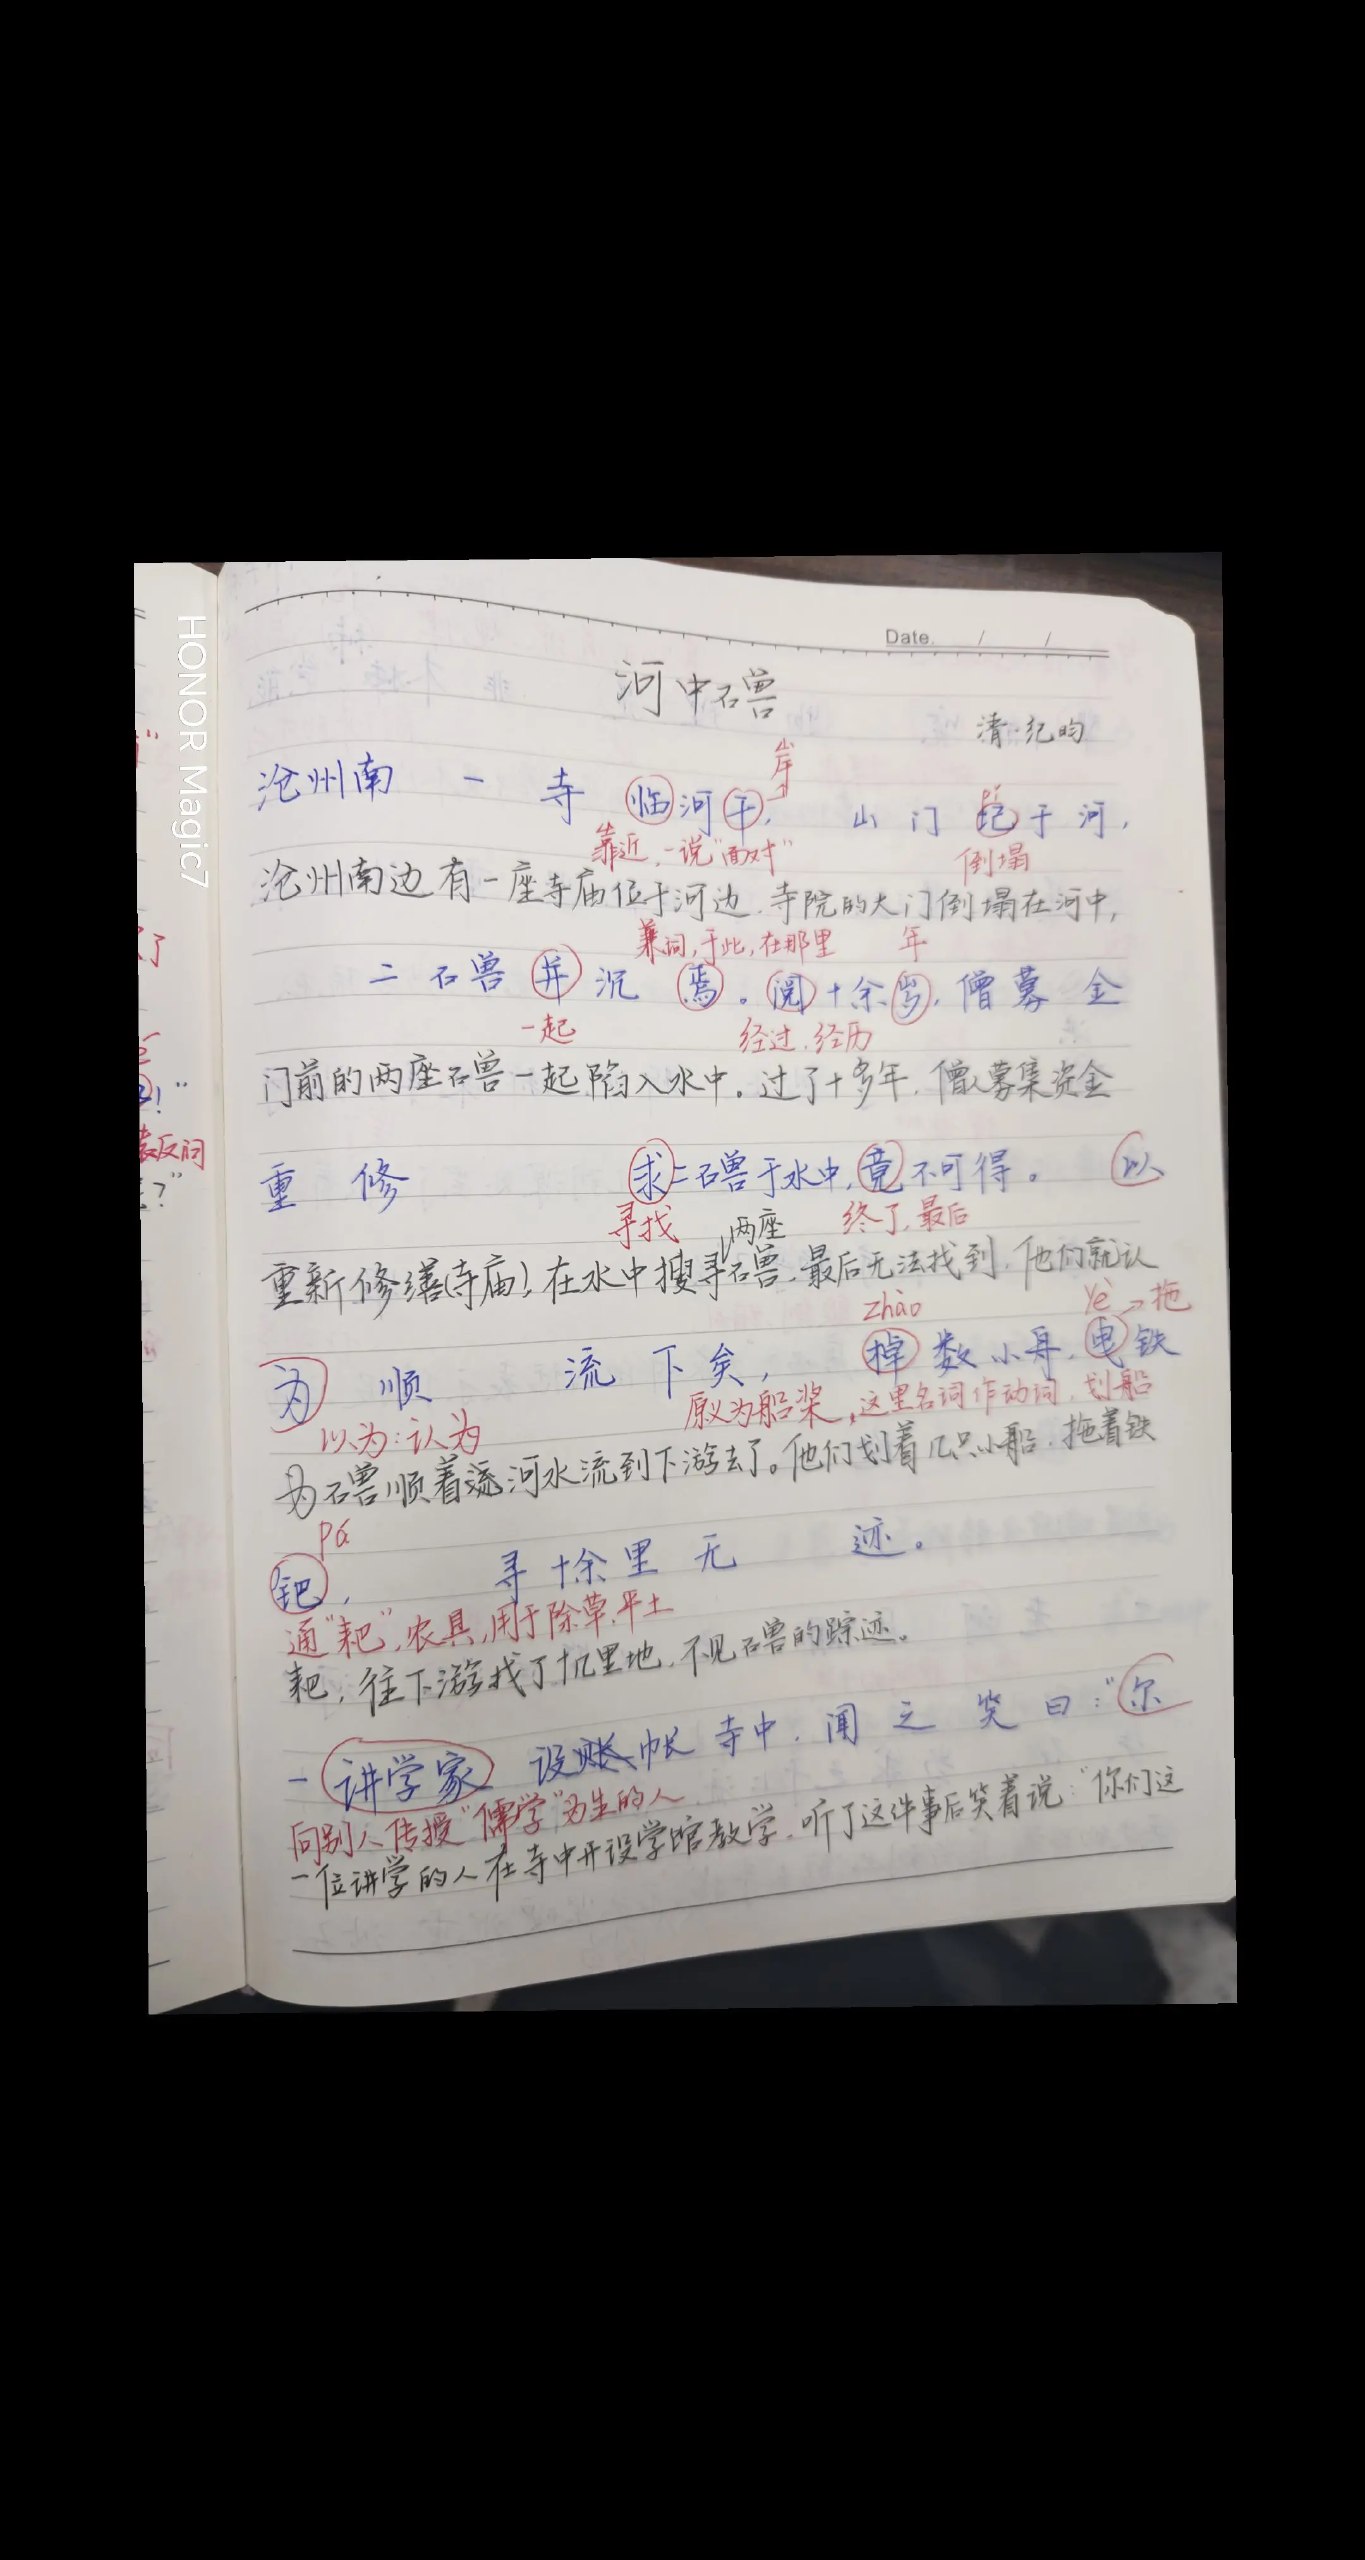 Date. / /
河中石兽
清·纪昀
岸
沧州南 一 寺 临河干, 山 门 圮于河,
靠近,一说"面对" 倒塌
沧州南边有一座寺庙位于河边,寺院的大门倒塌在河中,
兼词,于此,在那里 年
二 石兽 并 沉 焉。阅十余岁,僧募 金
一起 经过,经历
门前的两座石兽一起陷入水中。过了十多年,僧人募集资金
重 修 求二石兽于水中,竟不可得。 以
寻找 两座 终了,最后
重新修缮(寺庙),在水中搜寻石兽,最后无法找到,他们就认
zhào yè→拖
为 顺 流 下 矣, 棹数小舟,曳铁
以为:认为 原义为船桨,这里名词作动词,划船
为石兽顺着河水流到下游去了。他们划着几只小船,拖着铁
pá
钯, 寻十余里 无 迹。
通"耙",农具,用于除草,平土
耙,往下游找了十几里地,不见石兽的踪迹。
一讲学家 设帐寺中,闻之笑曰:"尔
向别人传授"儒学"为生的人
一位讲学的人在寺中开设学馆教学,听了这件事后笑着说:"你们这
HONOR Magic7
了
!"
表反问
?"